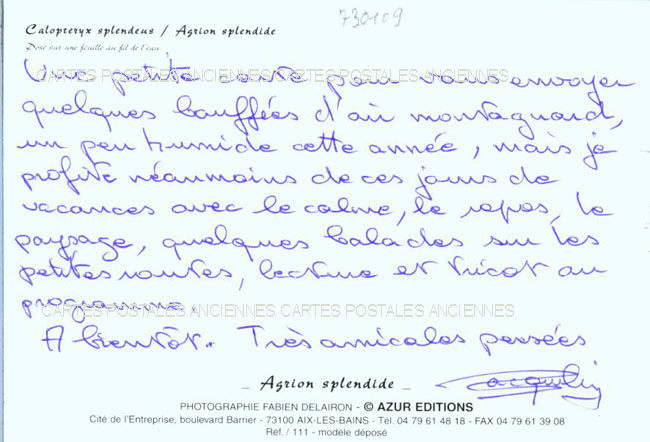 730109
Calopteryx splendeus / Agrion splendide
Pose sur une feuille au fil de l'eau
Une petite carte pour vous envoyer
CARTES POSTALES ANCIENNES CARTES POSTALES ANCIENNES
quelques bouffées d'air montagnard,
un peu humide cette année, mais je
profite néanmoins de ces jours de
vacances avec le calme, le repos, le
paysage, quelques balades sur les
petites routes, lecture et tricot au
programme.
CARTES POSTALES ANCIENNES CARTES POSTALES ANCIENNES
A bientôt. Très amicales pensées
Jacqueline
_ Agrion splendide _
PHOTOGRAPHIE FABIEN DELAIRON - © AZUR EDITIONS
Cité de l'Entreprise, boulevard Barrier - 73100 AIX-LES-BAINS - Tél. 04 79 61 48 18 - FAX 04 79 61 39 08
Réf. / 111 - modèle déposé